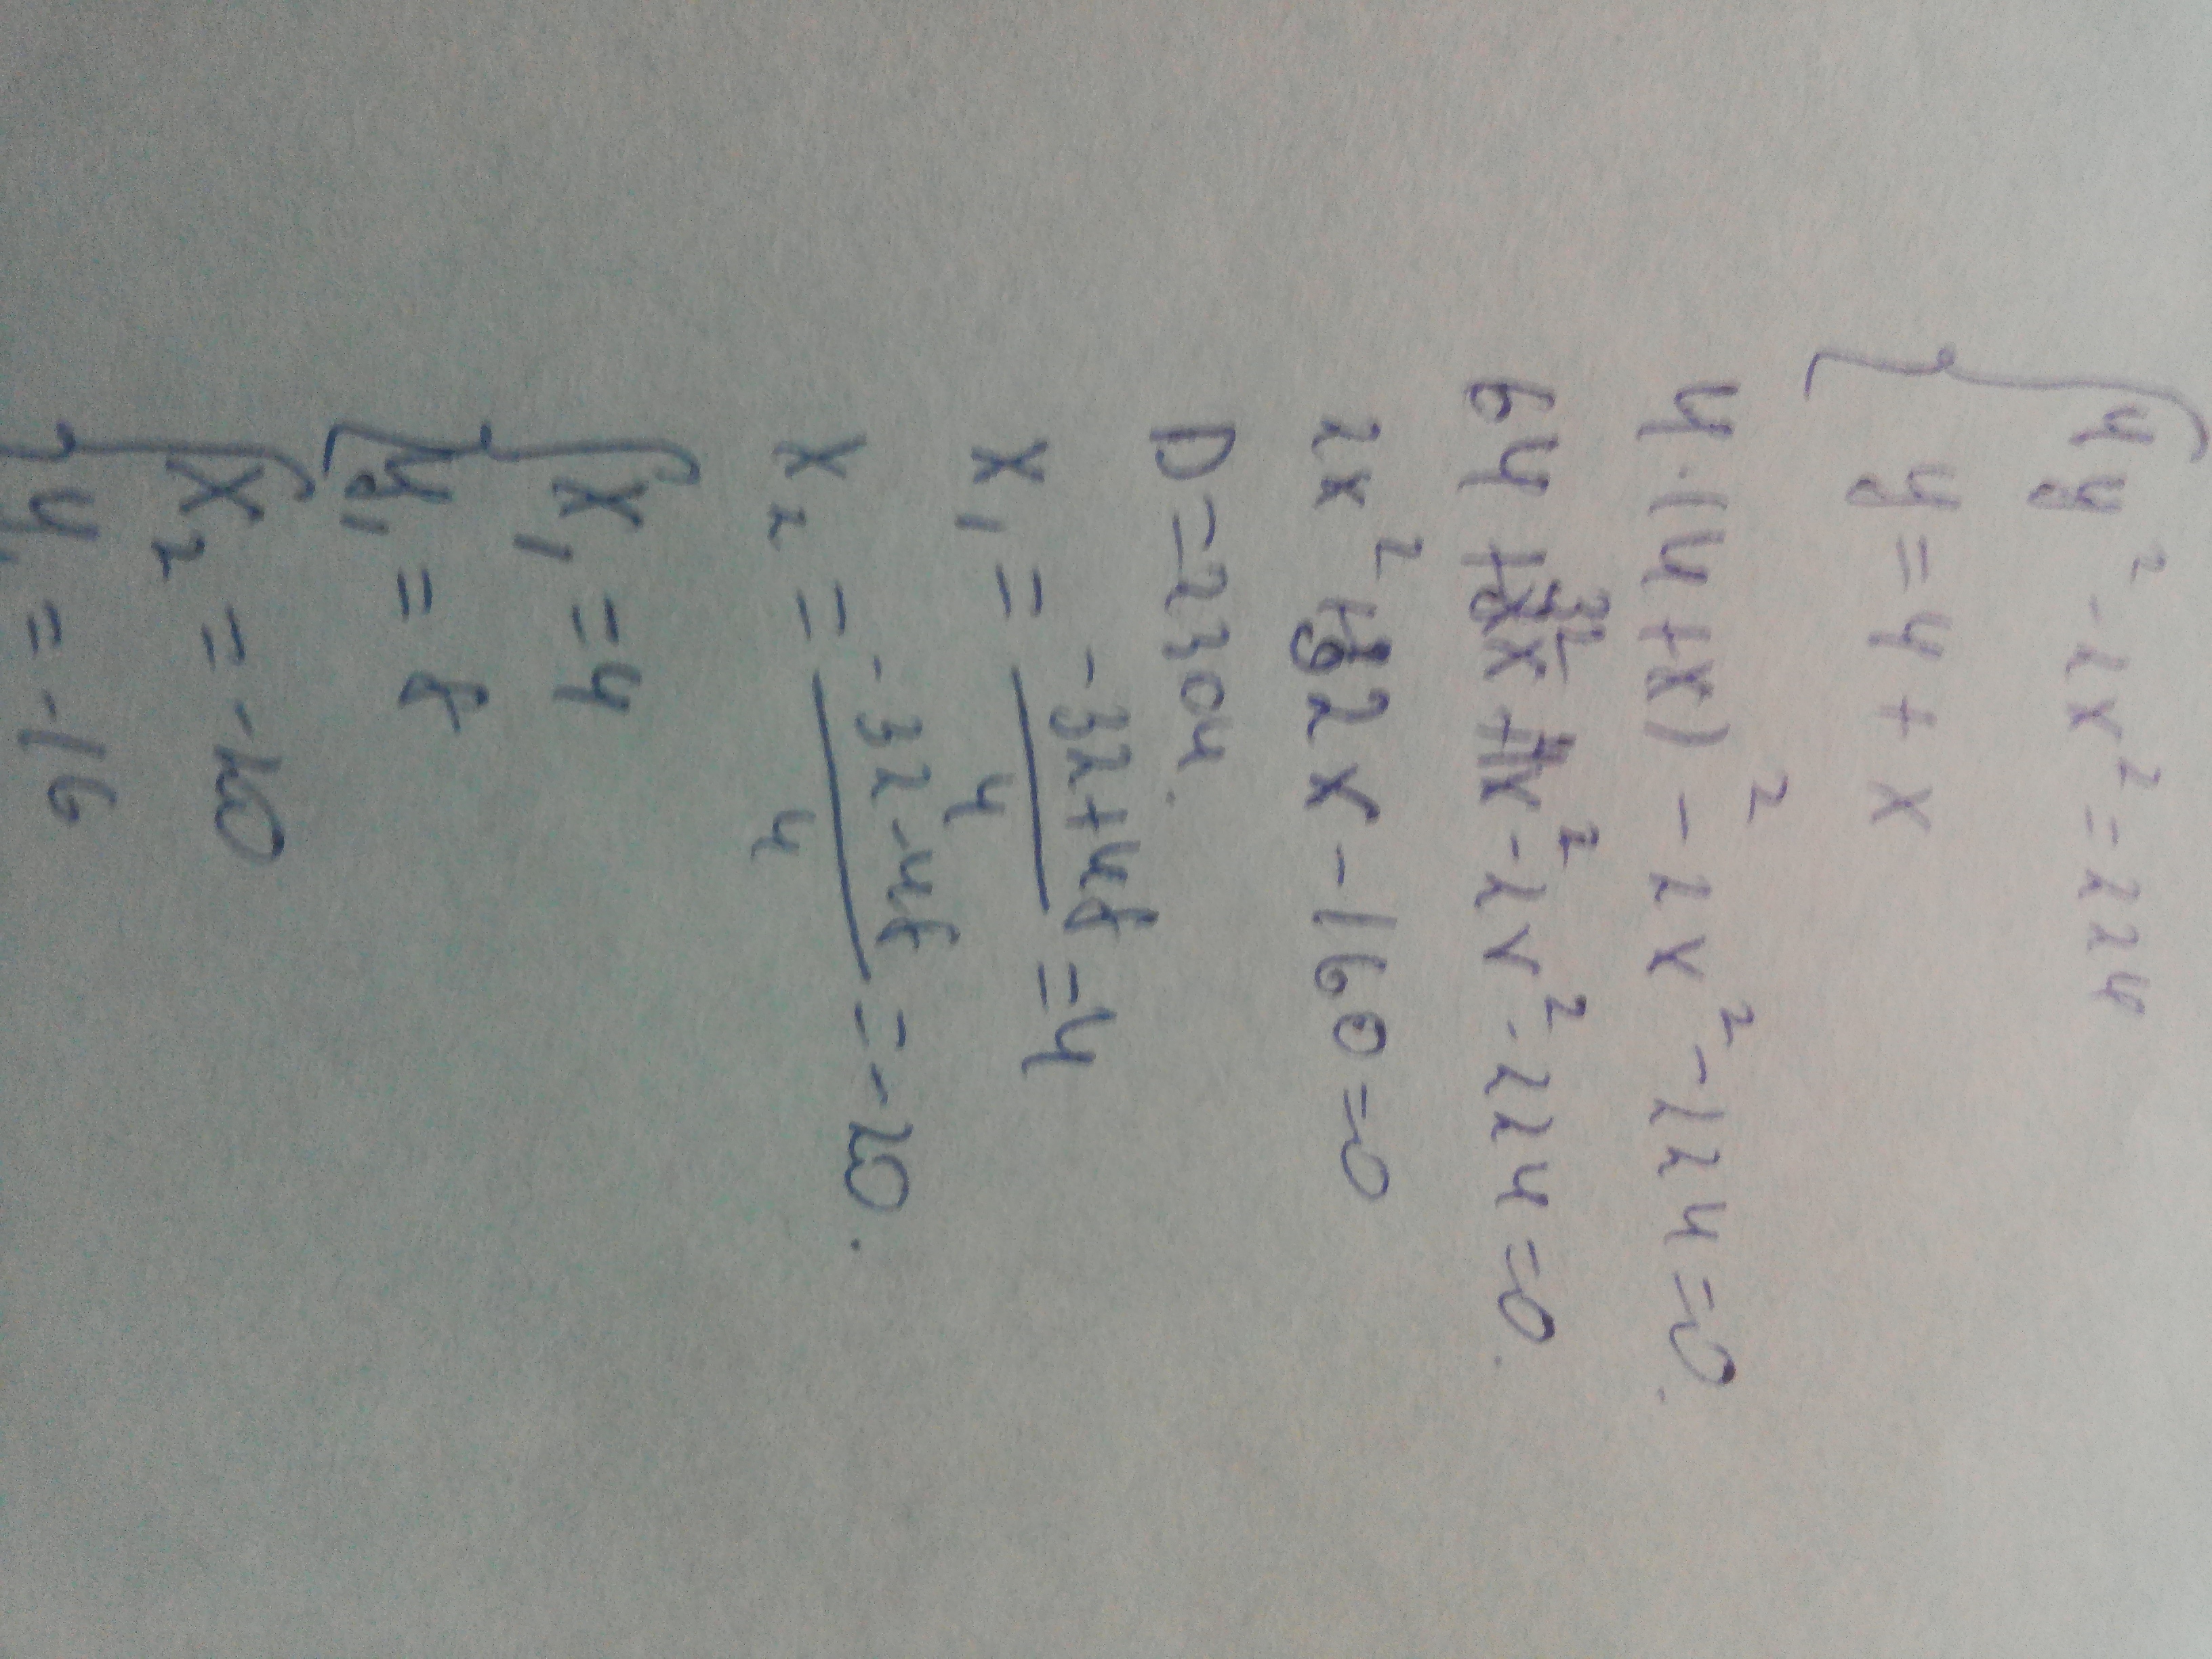 4y² - 2x² = 224
y = 4 + x
4·(4+x)² - 2x² - 224 = 0.
64 + 32x + 4x² - 2x² - 224 = 0.
2x² + 32x - 160 = 0
D = 2304.
x₁ = (-32+48)/4 = 4
x₂ = (-32-48)/4 = -20.
x₁ = 4
y₁ = 8
x₂ = -20
y₂ = -16